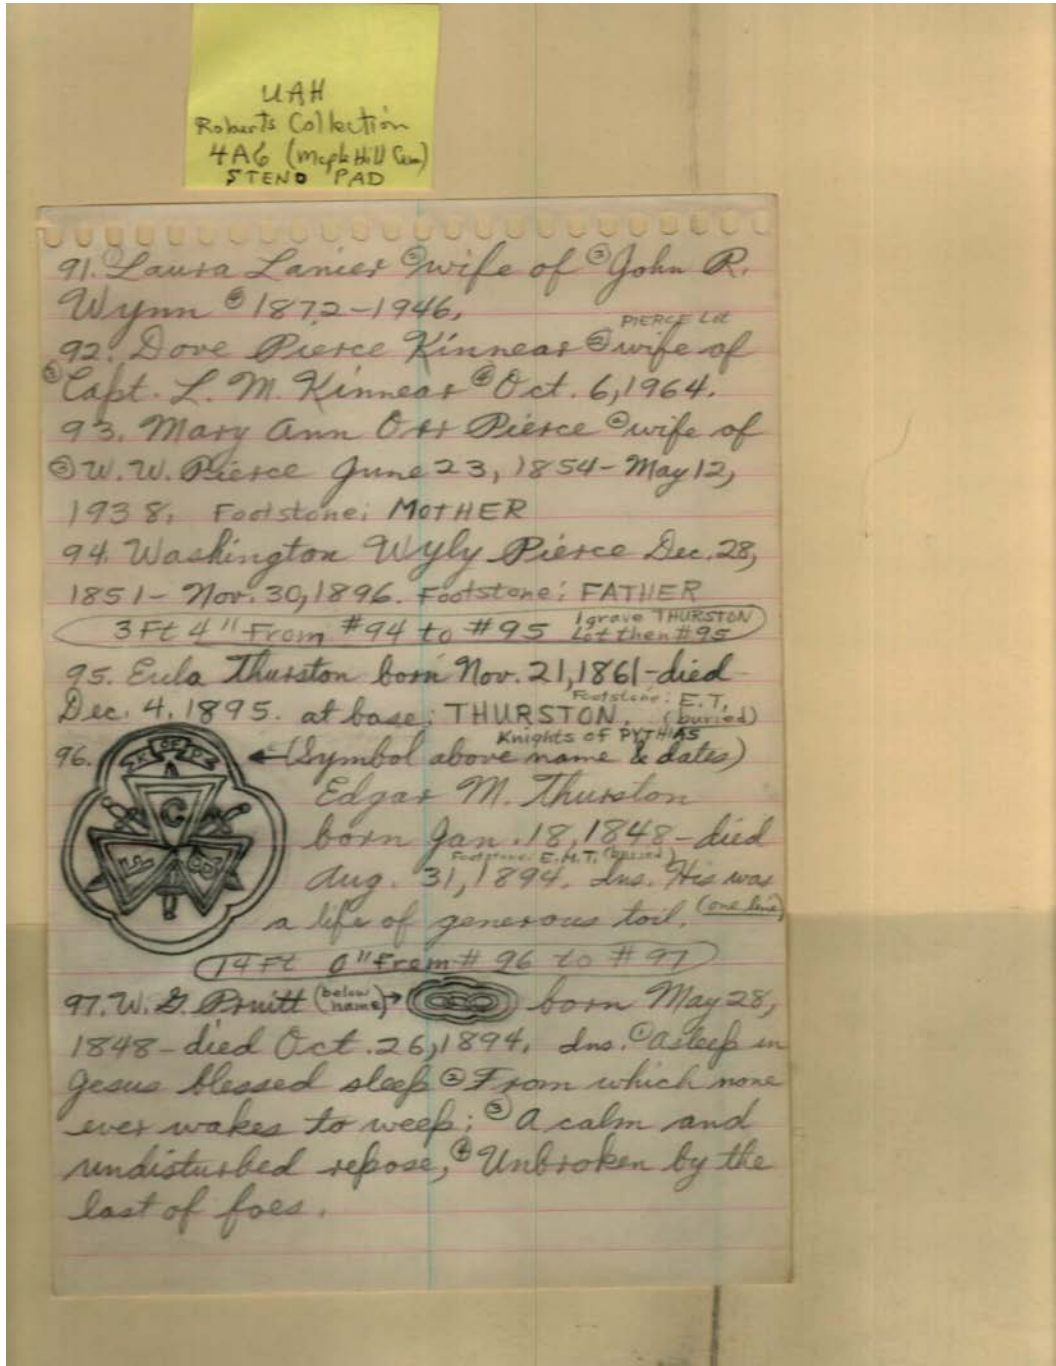 UAH
Roberts Collection
4A6 (Maple Hill Cem)
STENO PAD
91. ①Laura Lanier ②wife of ③John R.
Wynn ④1872-1946.
PIERCE Lot
92. Dove Pierce Kinnear ②wife of
③Capt. L. M. Kinnear ④Oct. 6, 1964.
93. Mary Ann Orr Pierce ②wife of
③W. W. Pierce June 23, 1854- May 12,
1938. Footstone: MOTHER
94. Washington Wyly Pierce Dec. 28,
1851- Nov. 30, 1896. Footstone: FATHER
3 Ft 4" From #94 to #95 1 grave THURSTON
Lot then #95
95. Eula Thurston born Nov. 21, 1861-died
Dec. 4, 1895. at base: THURSTON. Footstone: E.T.
(buried)
Knights of PYTHIAS
96. ←(Symbol above name & dates)
K OF P
C
F B
Edgar M. Thurston
born Jan. 18, 1848-died
Footstone: E.M.T. (buried)
Aug. 31, 1894. Ins. His was
a life of generous toil. (one line)
14 Ft 0" From # 96 to # 97
97. W. G. Pruitt (below name)→ born May 28,
1848-died Oct. 26, 1894. Ins. ①Asleep in
Jesus blessed sleep ②From which none
ever wakes to weep; ③A calm and
undisturbed repose, ④Unbroken by the
last of foes.